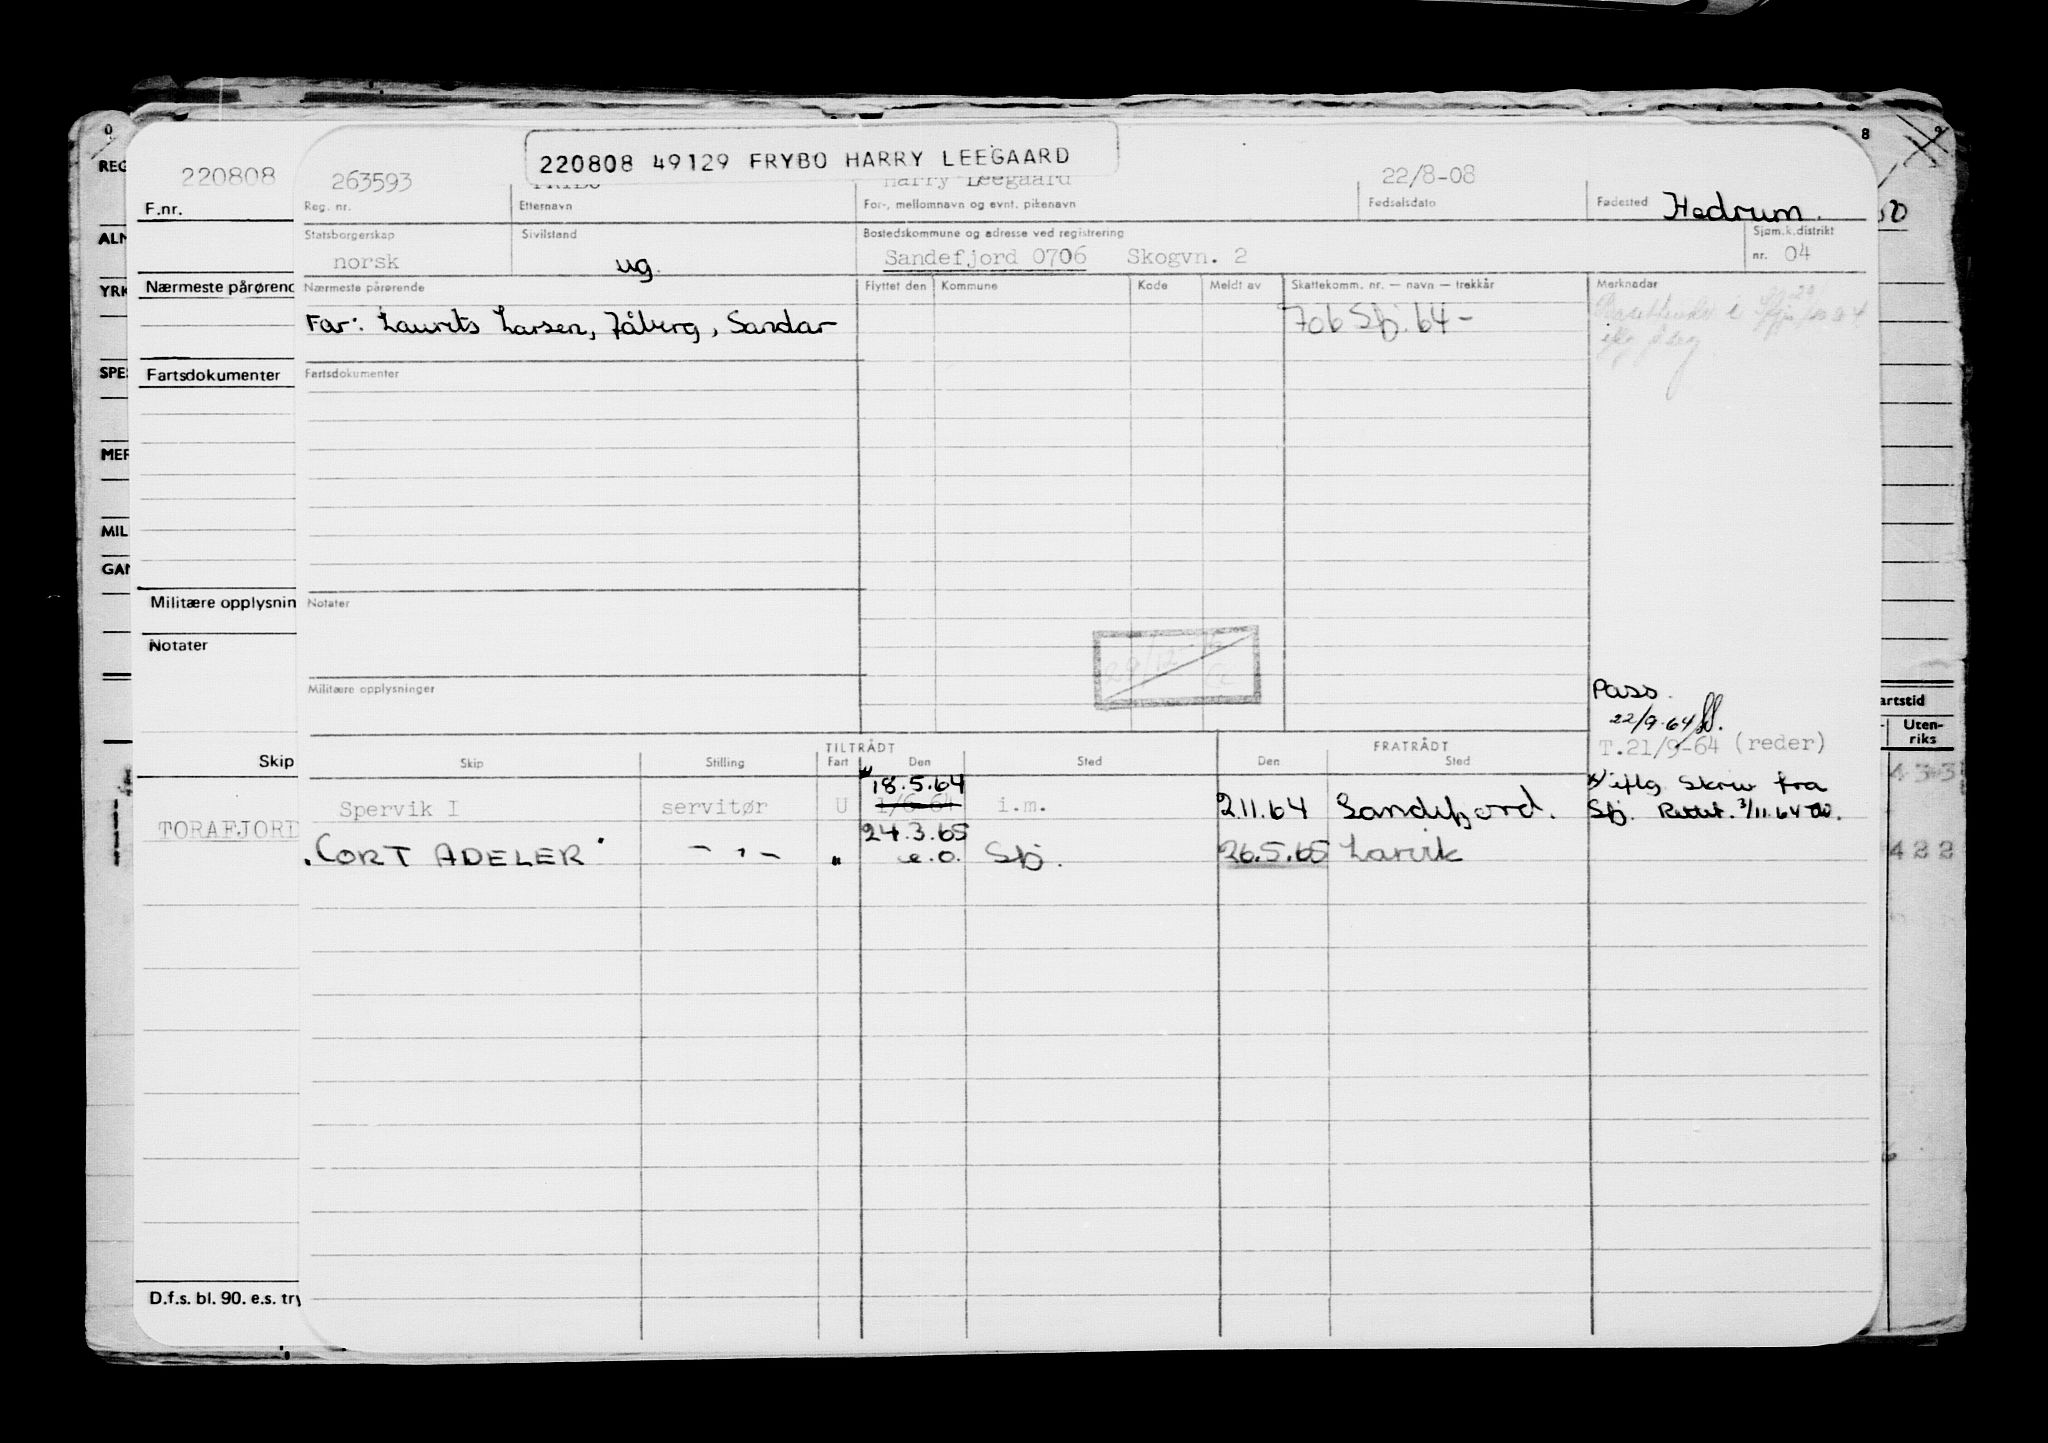 220808 49129 FRYBO HARRY LEEGAARD
220808
263593
Harry Leegaard
22/8-08
F.nr.
Reg. nr.
Etternavn
For-, mellomnavn og evnt. pikenavn
Fødselsdato
Fødested Hedrum.
Statsborgerskap
Sivilstand
Bostedskommune og adresse ved registrering
Sjøm.k.distrikt
norsk
ug.
Sandefjord 0706 Skogvn. 2
nr. 04
Nærmeste pårørende
Flyttet den
Kommune
Kode
Meldt av
Skattekomm. nr. — navn — trekkår
Merknader
Far: Laurits Larsen, Jåberg, Sandar
706 Sfj. 64 -
Fartsdokumenter
Fartsdokumenter
Militære opplysnin
Notater
Notater
Militære opplysninger
Pass.
22/9-64
T.21/9-64 (reder)
Skip
TILTRÅDT
FRATRÅDT
Skip
Stilling
Fart
Den
Sted
Den
Sted
Spervik I
servitør
U
18.5.64
1/6-64
i.m.
2.11.64
Sandefjord.
x) iflg. skriv fra
Sfj. Rettet. 3/11.64
TORAFJORD
"CORT ADELER"
- " -
"
24.3.65
e.o.
Sfj.
26.5.65
Larvik
D.f.s. bl. 90. e.s. try
REG
ALM
YRK
SPE
MER
MIL
GAN
artstid
Uten-
riks